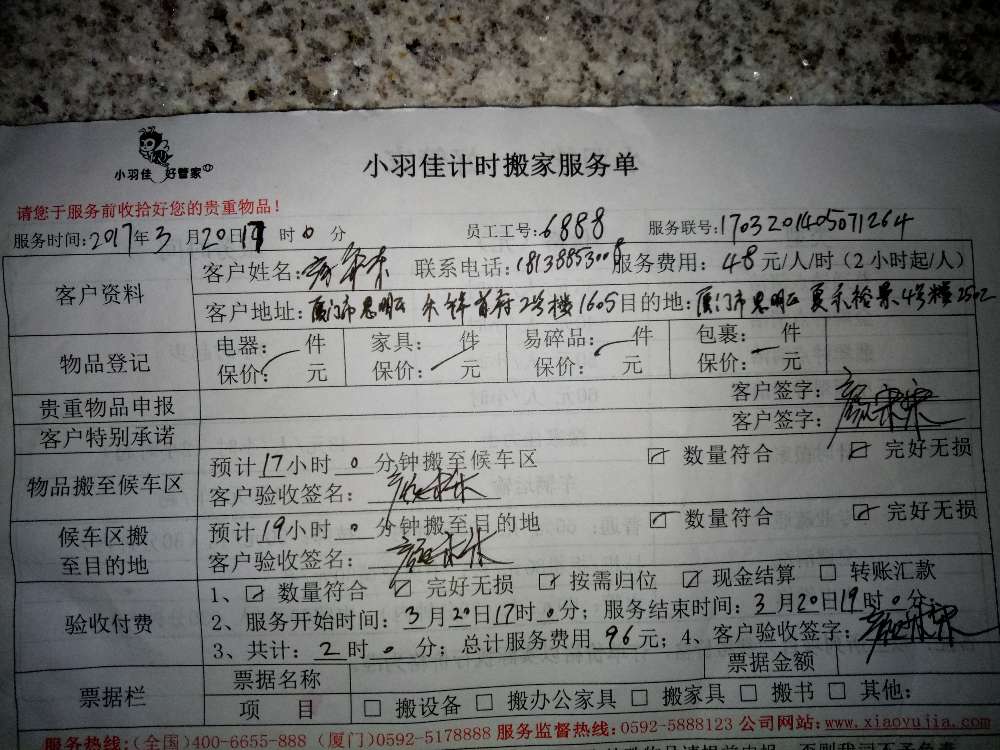 小羽佳 好管家
小羽佳计时搬家服务单
请您于服务前收拾好您的贵重物品！
服务时间:2017年3月20日17时0分 员工工号:6888 服务联号:1703201405071264
客户资料
客户姓名: 联系电话: 服务费用：48元/人/时（2小时起/人）
客户地址：厦门市思明区 首府2号楼1605 目的地：厦门市思明区 4号楼2502
物品登记
电器： 件 家具： 件 易碎品： 件 包裹： 件
保价： 元 保价： 元 保价： 元 保价： 元
贵重物品申报 客户签字：
客户特别承诺 客户签字：
物品搬至候车区
预计17小时0分钟搬至候车区 ☑ 数量符合 ☑ 完好无损
客户验收签名：
候车区搬至目的地
预计19小时0分钟搬至目的地 ☑ 数量符合 ☑ 完好无损
客户验收签名：
验收付费
1、☑ 数量符合 ☑ 完好无损 ☑ 按需归位 ☑ 现金结算 □ 转账汇款
2、服务开始时间：3月20日17时0分；服务结束时间：3月20日19时0分；
3、共计：2时0分；总计服务费用96元；4、客户验收签字：
票据栏
票据名称 票据金额
项 目 □ 搬设备 □ 搬办公家具 □ 搬家具 □ 搬书 □ 其他：
服务热线:(全国)400-6655-888 (厦门)0592-5178888 服务监督热线:0592-5888123 公司网站:www.xiaoyujia.com